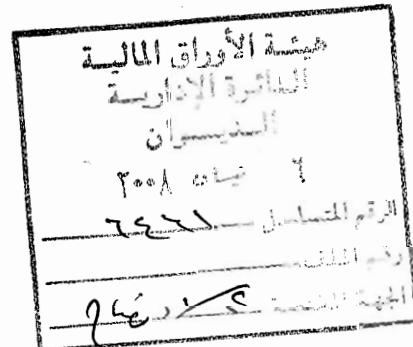 هيئة الأوراق المالية
الدائرة الإدارية
الديوان
٦ نيسان ٢٠٠٨
الرقم المتسلسل ٦٤٦١
رقم الملف
الجهة المختصة